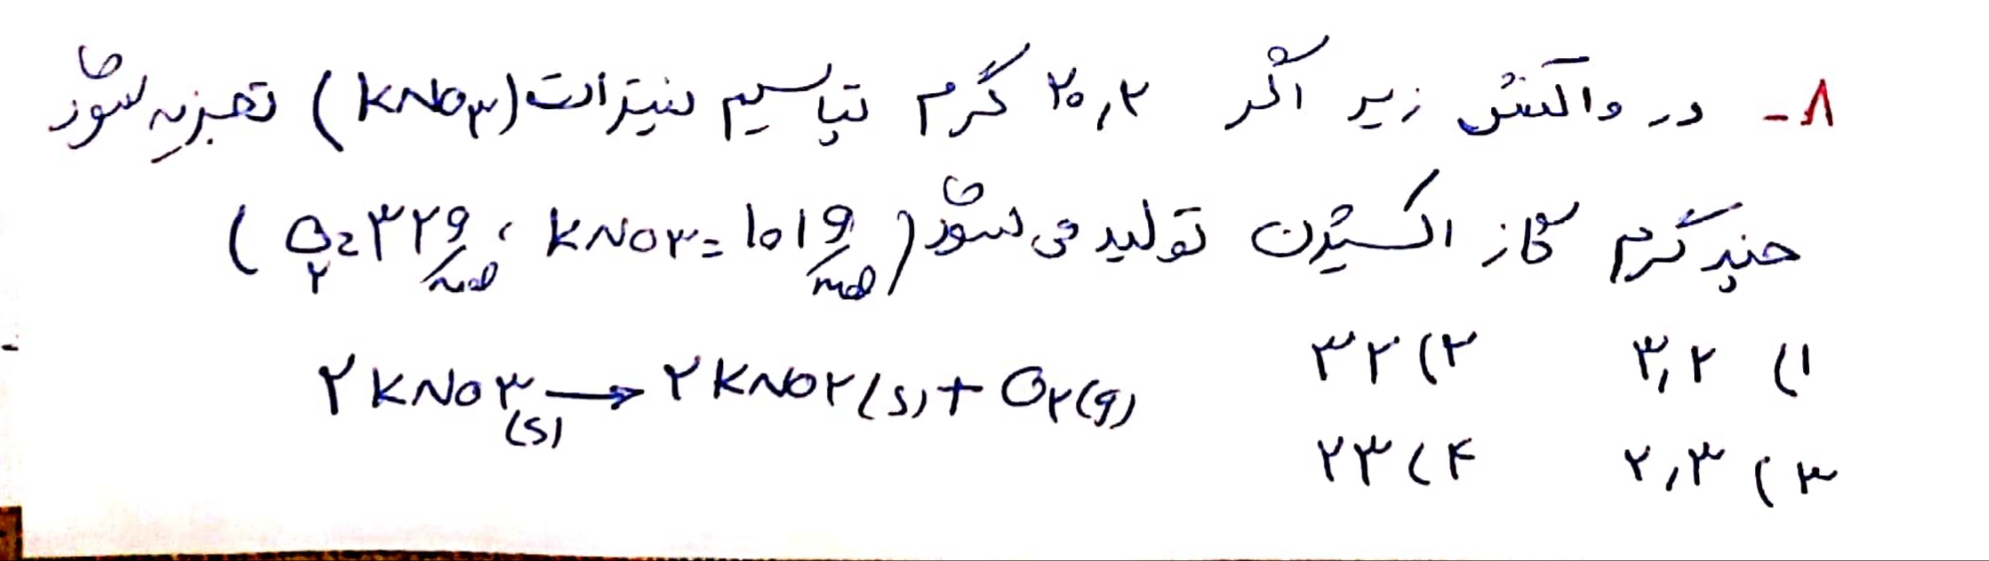 ۸- در واکنش زیر اگر ۲۰٫۲ گرم پتاسیم نیترات (KNO۳) تجزیه شود
چند گرم گاز اکسیژن تولید می شود (KNO۳ = ۱۰۱ g/mol ، O۲ = ۳۲ g/mol)
۱) ۳٫۲ ۲) ۳۲
۲KNO۳(s) → ۲KNO۲(s) + O۲(g)
۳) ۲٫۳ ۴) ۲۳